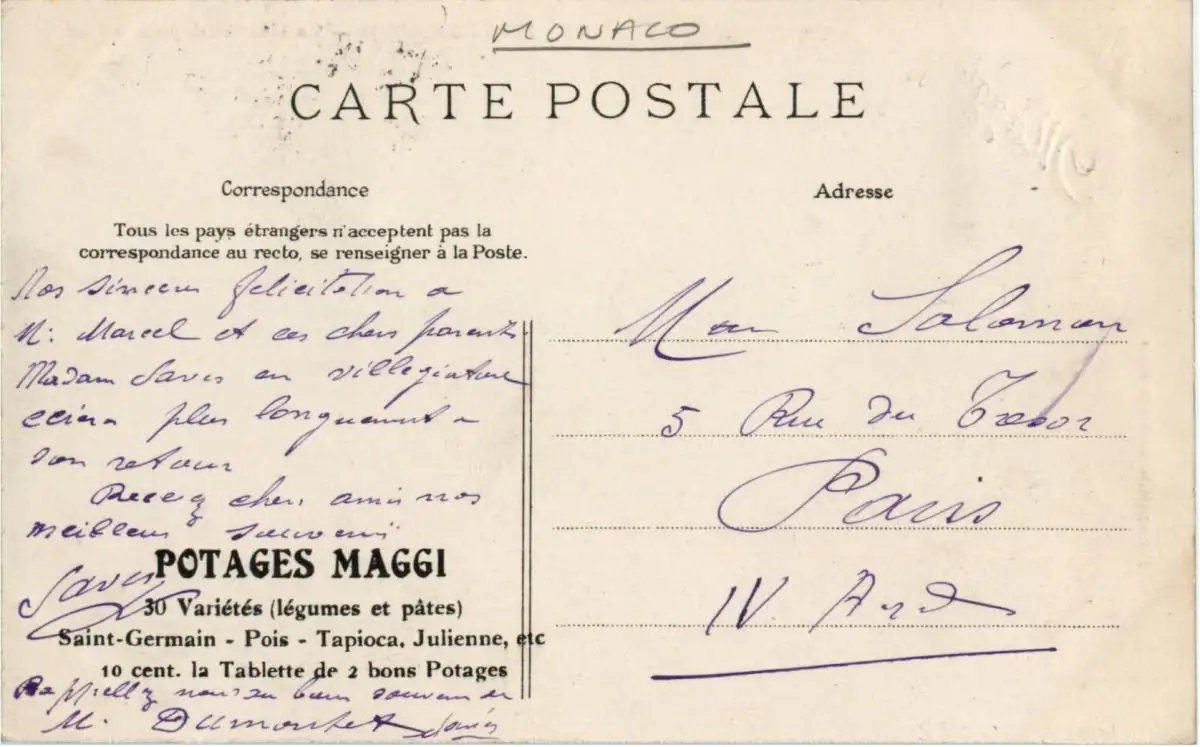 MONACO
CARTE POSTALE
Correspondance
Tous les pays étrangers n'acceptent pas la
correspondance au recto, se renseigner à la Poste.
Nos sinceres felicitation a
M. Marcel et ces chers parents
Madam Savis en villegiature
ecira plus longuement a
son retour
Recevez chers amis nos
meilleurs souvenirs
Savis
POTAGES MAGGI
30 Variétés (légumes et pâtes)
Saint-Germain - Pois - Tapioca, Julienne, etc
10 cent. la Tablette de 2 bons Potages
Rappellez nous au bon souvenir de
M. Dumontet
Adresse
Mon Salomon
5 Rue du Tresor
Paris
IV Arrd